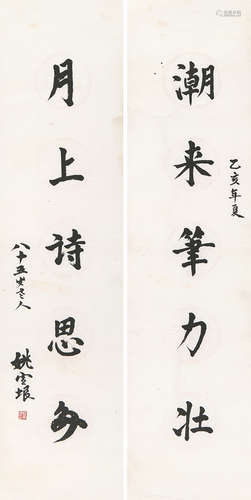 乙亥年夏
潮来筆力壮
月上詩思多
八十五岁老人
姚雪垠